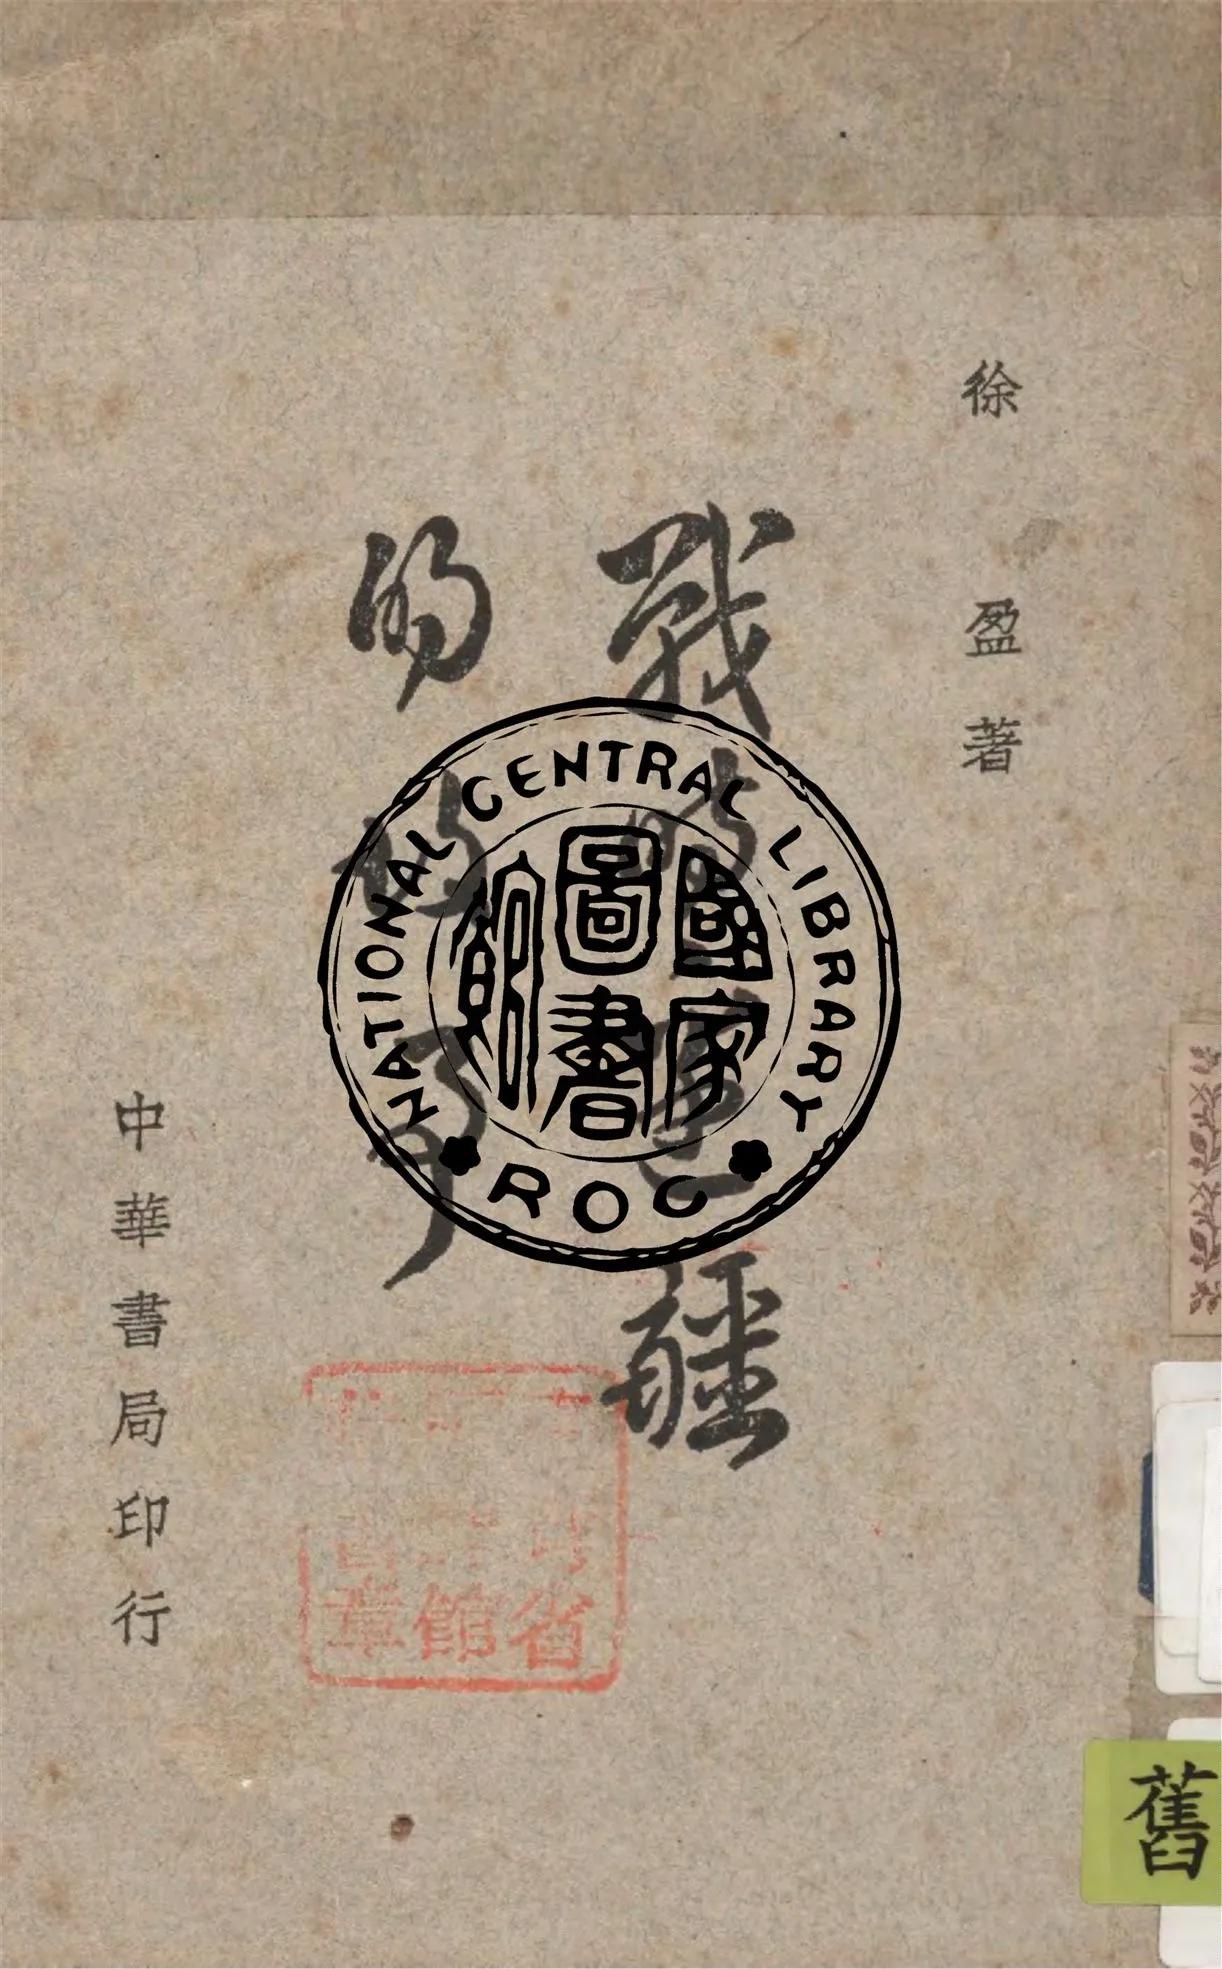 徐盈著
戰時邊疆
的故事
中華書局印行
NATIONAL CENTRAL LIBRARY
ROC
國家
圖書
館
省
館
章
舊